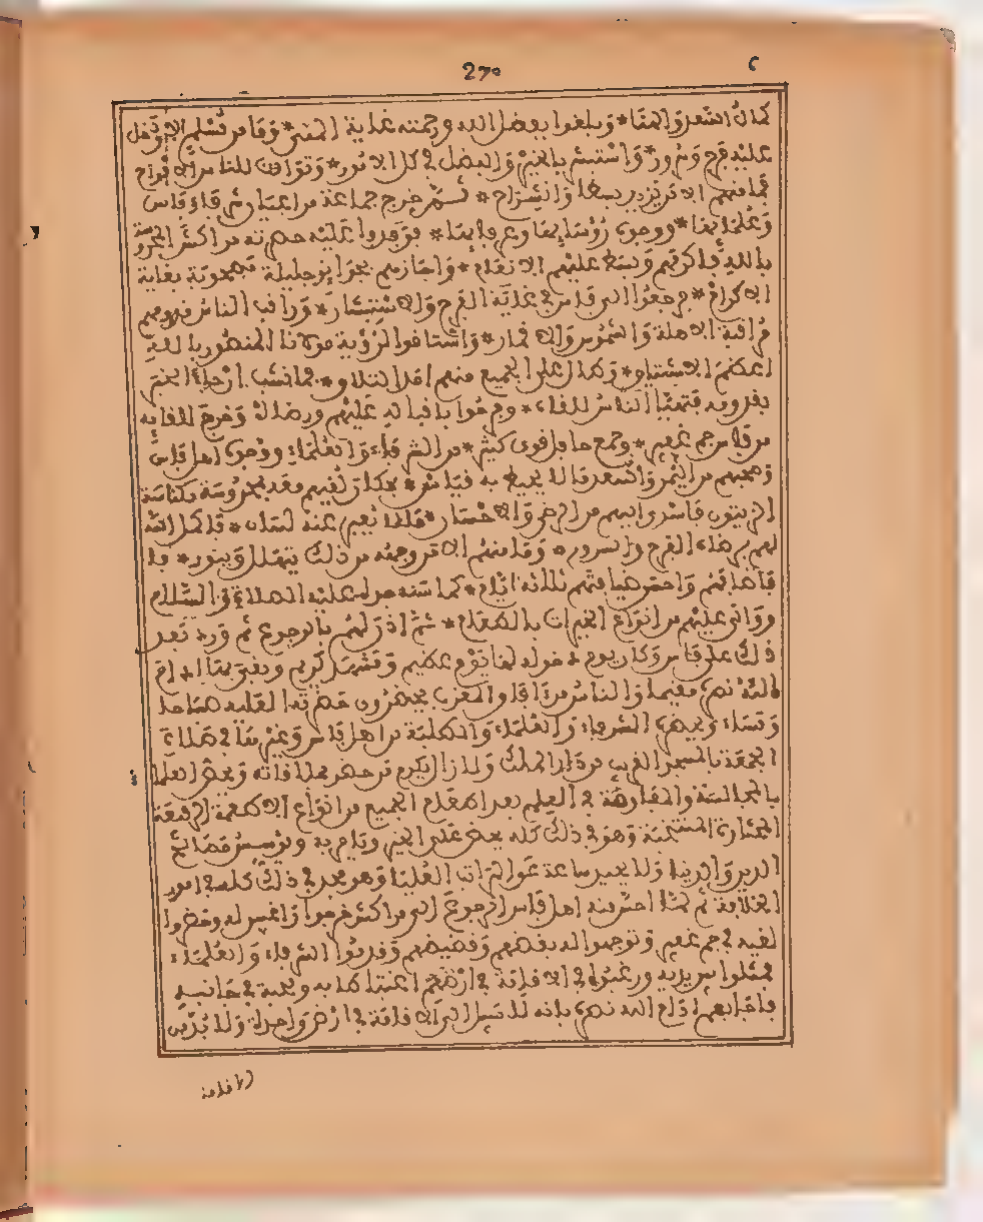 270
كمال السعد والهنا * وبلغوا بفضل الله ورحمته غاية المنى * وما من مسلم الا ودخل
عليه فرح وسرور * واستبشر بالخير والفضل في كل الامور * وتوالت للناس الافراح
فما منهم الا من يزيد بسطا وانشراح * ثم خرج جماعة من اعيان فاس
وعلمائها * ووجوه رؤسائها وعرفائها * فوفدوا عليه حضرته مراكش المحروسة
بالله فاكرمهم وبسط عليهم الانعام * واجازهم بجوائز جليلة مصحوبة بغاية
الاكرام * فرجعوا الى فاس في غاية الفرح والاستبشار * وراقب الناس قدومه
مراقبة الاهلة والشموس والاقمار * واشتاقوا لرؤية مولانا المنصور بالله
اعظم الاشتياق * وكمال على الجميع منهم امل التلاق * فما نشب ان جاء الخبر
بقدومه فتهيأ الناس للقاء * وفرحوا باقباله عليهم ورضاه وخرج للقائه
من فاس جم غفير * وجمع حافل قوي كثير * من الشرفاء والعلماء ووجوه اهل فاس
وصحبهم من اليمن والسعد ما لا يحيط به قياس * فكان لقيهم معه بمحروسة مكناسة
الزيتون فاسدى اليهم من الرضى والاحسان * فلا يعبر عنه لسان * فاكمل الله
لهم برضاه الفرح والسرور * وما منهم الا من وجهه من ذلك يتهلل وينور *
فاضافهم واحضر ضيافتهم ثلاثة ايام * كما سنه جده عليه الصلاة والسلام
ووالى عليهم من انواع الخيرات بالمقام * ثم اذن لهم بالرجوع ثم ورد بعد
ذلك على فاس وكان يوم دخوله لها يوم عظيم ومشهد كريم وبقي بها ادام
الله نصره مقيما والناس من افاق المغرب يحضرون حضرته العلية صباحا
ومساء ويحضر الشرفاء والعلماء والطلبة من اهل فاس وغيرها في صلاة
الجمعة بالمسجد القريب من دار الملك ولا زال يكرم من حضر بملاقاته ويخص العلما
بالمجالسة والمفاوضة في العلم بعد اطعام الجميع من انواع الاطعمة الرفيعة
المختارة المنتخبة وهو في ذلك كله يحض على الخير ويامر به ويؤسس مصالح
الدين والدنيا ولا يحيد ساعة عن المراتب العليا وهو مجد في ذلك كله في امور
الخلافة ثم لما احس منه اهل فاس الرجوع الى مراكش خرجوا واتفقوا له وحضروا
لقيه في جم غفير وتوجهوا اليه بقضهم وقضيضهم وقدموا الشرفاء والعلماء
فمثلوا بين يديه ورغبوا في الاقامة في ارضهم اغتباطا به ومحبة في جانبه
فاجابهم ادام الله نصره بانه لا سبيل الى الاقامة في ارض واحدة ولا بد من
الاقامة